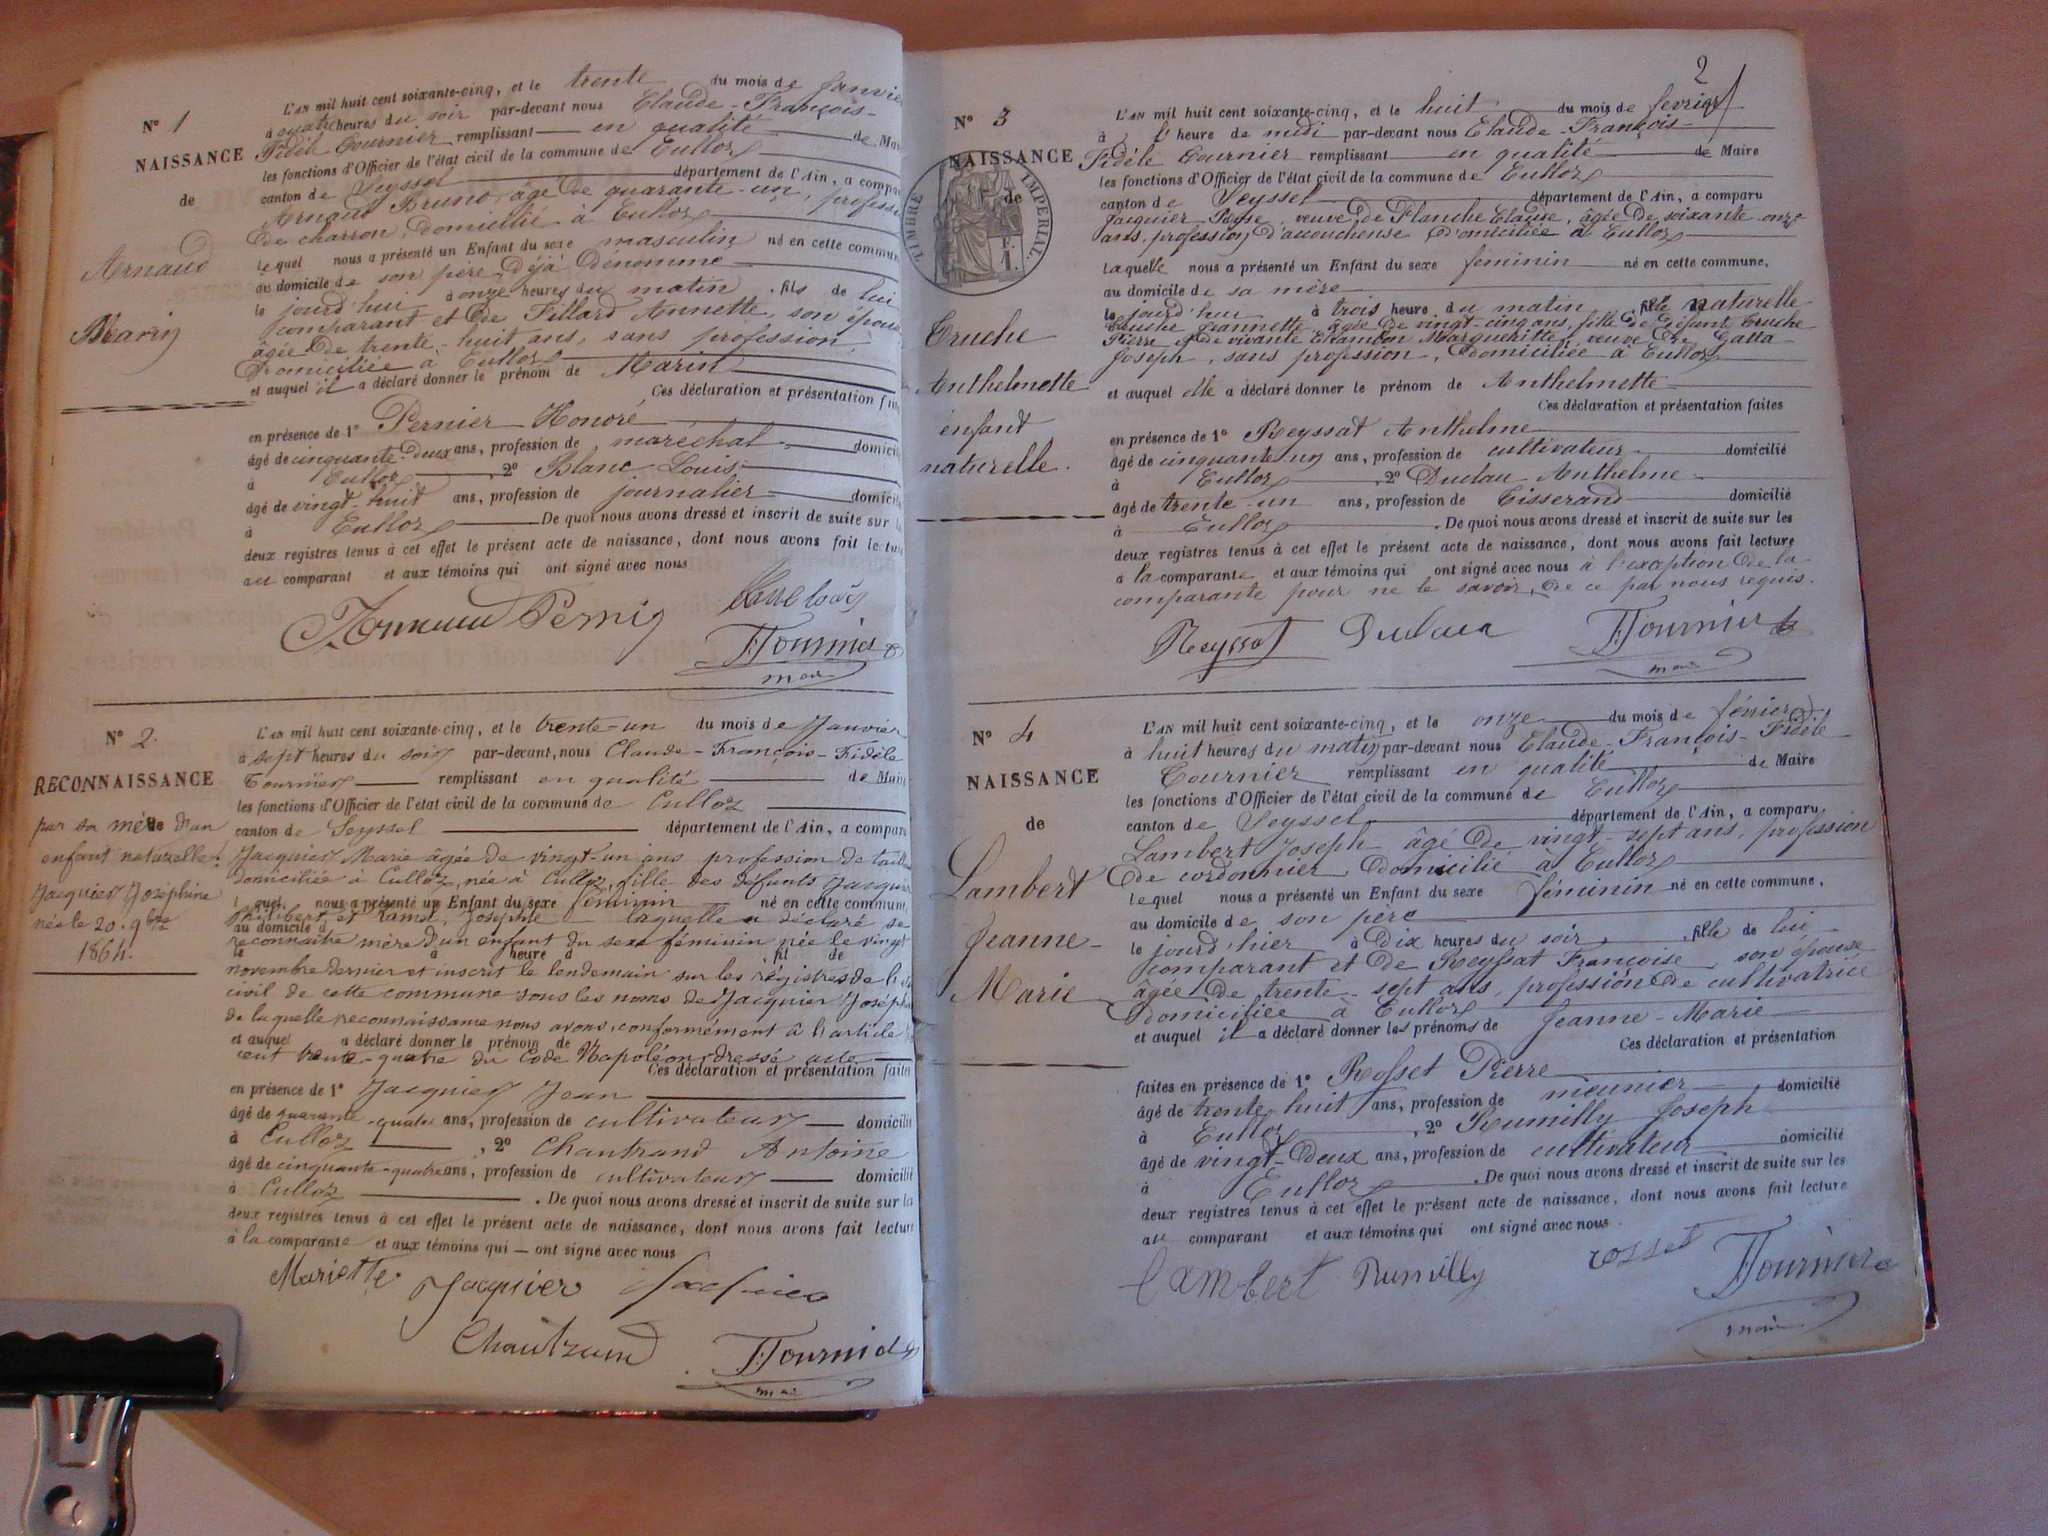 N° 1
NAISSANCE
de
Arnaud
Marin
L'AN mil huit cent soixante-cinq, et le trente du mois de Janvier
à quatre heures du soir par-devant nous Claude-François-
Fidèle Tournier remplissant en qualité de Mai
les fonctions d'Officier de l'état civil de la commune de Culloz
canton de Seyssel département de l'Ain, a compa
Arnaud Bruno, âgé de quarante-un, professi
de charron, domicilié à Culloz
lequel nous a présenté un Enfant du sexe masculin né en cette commun
au domicile de son père déjà dénommé
le jourd'hui à onze heures du matin, fils de lui
comparant et de Fillard Annette, son épou
âgée de trente-huit ans, sans profession,
domiciliée à Culloz
et auquel il a déclaré donner le prénom de Marin
Ces déclaration et présentation fai
en présence de 1° Pernier Honoré
âgé de cinquante-deux ans, profession de maréchal domicili
à Culloz, 2° Blanc Louis
âgé de vingt-huit ans, profession de journalier domicili
à Culloz De quoi nous avons dressé et inscrit de suite sur l
deux registres tenus à cet effet le présent acte de naissance, dont nous avons fait lectu
au comparant et aux témoins qui ont signé avec nous
FTournier
maire
N° 2.
RECONNAISSANCE
par sa mère d'un
enfant naturelle.
Jacquier Joséphine
née le 20. 9bre
1864.
L'AN mil huit cent soixante-cinq, et le trente-un du mois de Janvier
à sept heures du soir par-devant nous Claude-François-Fidèle
Tournier remplissant en qualité de Maire
les fonctions d'Officier de l'état civil de la commune de Culloz
canton de Seyssel département de l'Ain, a comparu
Jacquier Marie âgée de vingt-un ans profession de taill
domiciliée à Culloz, née à Culloz, fille des défunts Jacquie
l quel nous a présenté un Enfant du sexe féminin né en cette commune
Philibert et Joséphte laquelle a déclaré se
au domicile d
reconnaître mère d'un enfant du sexe féminin née le vingt
le à heure d fil de
novembre dernier et inscrit le lendemain sur les régistres de l'
civil de cette commune sous les noms de Jacquier Joséph
de laquelle reconnaissance nous avons, conformément à l'article
et auquel a déclaré donner le prénom de
cent trente-quatre du Code Napoléon, dressé acte
Ces déclaration et présentation faites
en présence de 1° Jacquier Jean
âgé de quarante-quatre ans, profession de cultivateur domicilié
à Culloz, 2° Chautrand Antoine
âgé de cinquante-quatre ans, profession de cultivateur domicilié
à Culloz. De quoi nous avons dressé et inscrit de suite sur la
deux registres tenus à cet effet le présent acte de naissance, dont nous avons fait lecture
à la comparante et aux témoins qui ont signé avec nous
Mariette Jacquier Jacquier
Chautrand FTournier
maire
2
N° 3
NAISSANCE
de
TIMBRE IMPERIAL.
Truche
Anthelmette
enfant
naturelle.
L'AN mil huit cent soixante-cinq, et le huit du mois de février
à l'heure de midi par-devant nous Claude-François-
Fidèle Tournier remplissant en qualité de Maire
les fonctions d'Officier de l'état civil de la commune de Culloz
canton de Seyssel département de l'Ain, a comparu
Jacquier veuve de Planche Claude, âgée de soixante-onze
ans, profession d'accoucheuse domiciliée à Culloz
laquelle nous a présenté un Enfant du sexe féminin né en cette commune,
au domicile de sa mère
le jourd'hui à trois heure du matin, fille naturelle
Truche Jeannette, âgée de vingt-cinq ans, fille de défunt Truche
Pierre et de vivante Chambon Margueritte, veuve de Gatta
Joseph, sans profession, domiciliée à Culloz
et auquel elle a déclaré donner le prénom de Anthelmette
Ces déclaration et présentation faites
en présence de 1° Reyssat Anthelme
âgé de cinquante un ans, profession de cultivateur domicilié
à Culloz, 2° Duclau Anthelme
âgé de trente-un ans, profession de Tisserand domicilié
à Culloz. De quoi nous avons dressé et inscrit de suite sur les
deux registres tenus à cet effet le présent acte de naissance, dont nous avons fait lecture
à la comparante et aux témoins qui ont signé avec nous à l'exception de la
comparante pour ne le savoir, de ce par nous requis.
Reyssat Duclau FTournier
maire
N° 4
NAISSANCE
de
Lambert
Jeanne-
Marie
L'AN mil huit cent soixante-cinq, et le onze du mois de février
à huit heures du matin par-devant nous Claude-François-Fidèle
Tournier remplissant en qualité de Maire
les fonctions d'Officier de l'état civil de la commune de Culloz
canton de Seyssel département de l'Ain, a comparu,
Lambert Joseph âgé de vingt-sept ans, profession
de cordonnier, domicilié à Culloz
lequel nous a présenté un Enfant du sexe féminin né en cette commune,
au domicile de son père
le jourd'hier à dix heures du soir, fille de lui
comparant et de Reyssat Françoise, son épouse
âgée de trente-sept ans, profession de cultivatrice
domiciliée à Culloz
et auquel il a déclaré donner les prénoms de Jeanne-Marie
Ces déclaration et présentation
faites en présence de 1° Rosset Pierre
âgé de trente huit ans, profession de meunier domicilié
à Culloz, 2° Rumilly Joseph
âgé de vingt-deux ans, profession de cultivateur domicilié
à Culloz. De quoi nous avons dressé et inscrit de suite sur les
deux registres tenus à cet effet le présent acte de naissance, dont nous avons fait lecture
au comparant et aux témoins qui ont signé avec nous
Lambert Rumilly rosset FTournier
maire